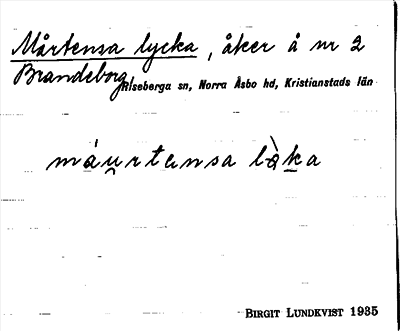 Mårtensa lycka, åker å nr 2
Brandeborg, Riseberga sn, Norra Åsbo hd, Kristianstads län
máu̯rtensa làka
BIRGIT LUNDKVIST 1935